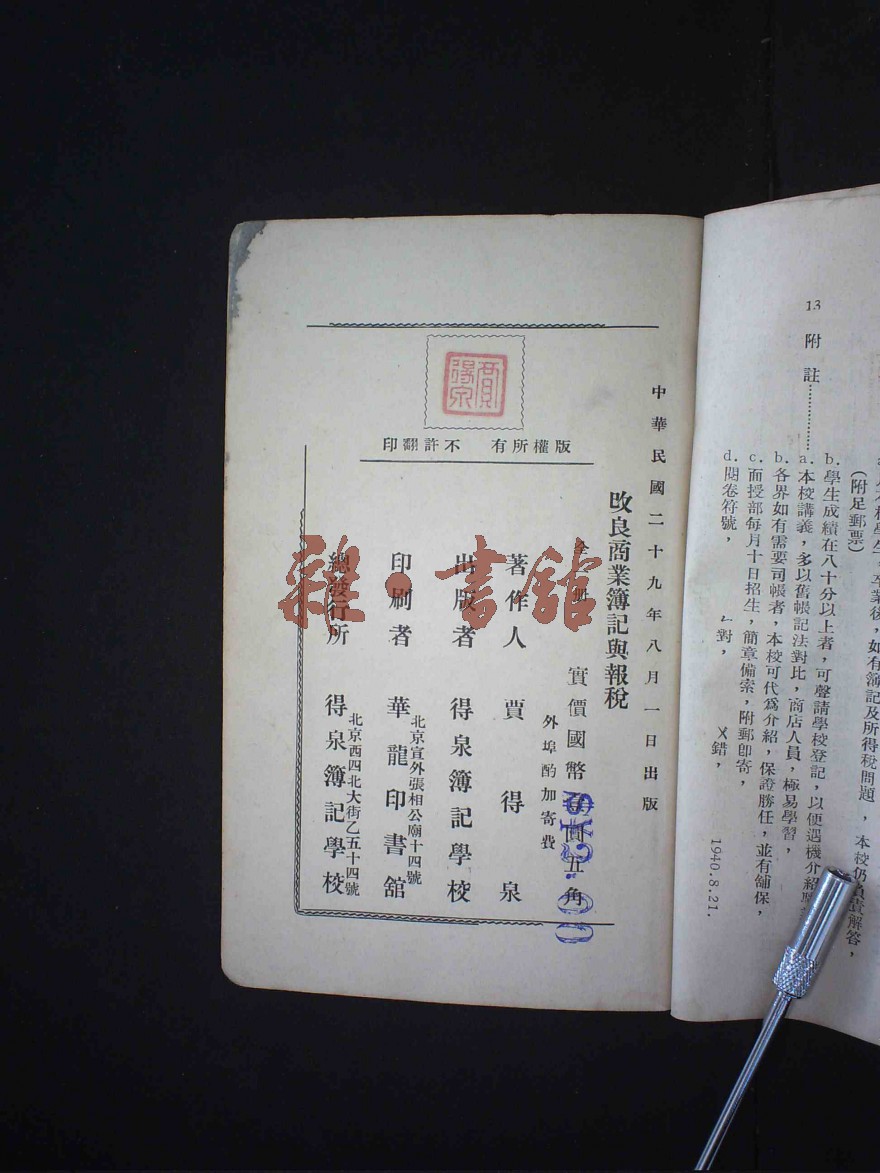 13 附註
b. 學生成績在八十分以上者，可聲請學校登記，以便遇機介紹
a. 本校講義，多以舊帳記法對比，商店人員，極易學習，
b. 各界如有需要司帳者，本校可代爲介紹，保證勝任，並有舖保，
c. 面授部每月十日招生，簡章備索，附郵卽寄，
d. 閱卷符號， 對， X錯，
1940.8.21.
(附足郵票)
卒業後，如有簿記及所得稅問題，本校仍負責解答，
中華民國二十九年八月一日出版
改良商業簿記與報稅
全一册
實價國幣 圓五角
$2.00
外埠酌加寄費
著作人 賈得泉
出版者 得泉簿記學校
印刷者 華龍印書館
北京宣外張相公廟十四號
總發行所 得泉簿記學校
北京西四北大街乙五十四號
版權所有 不許翻印
賈得泉
雜·書館